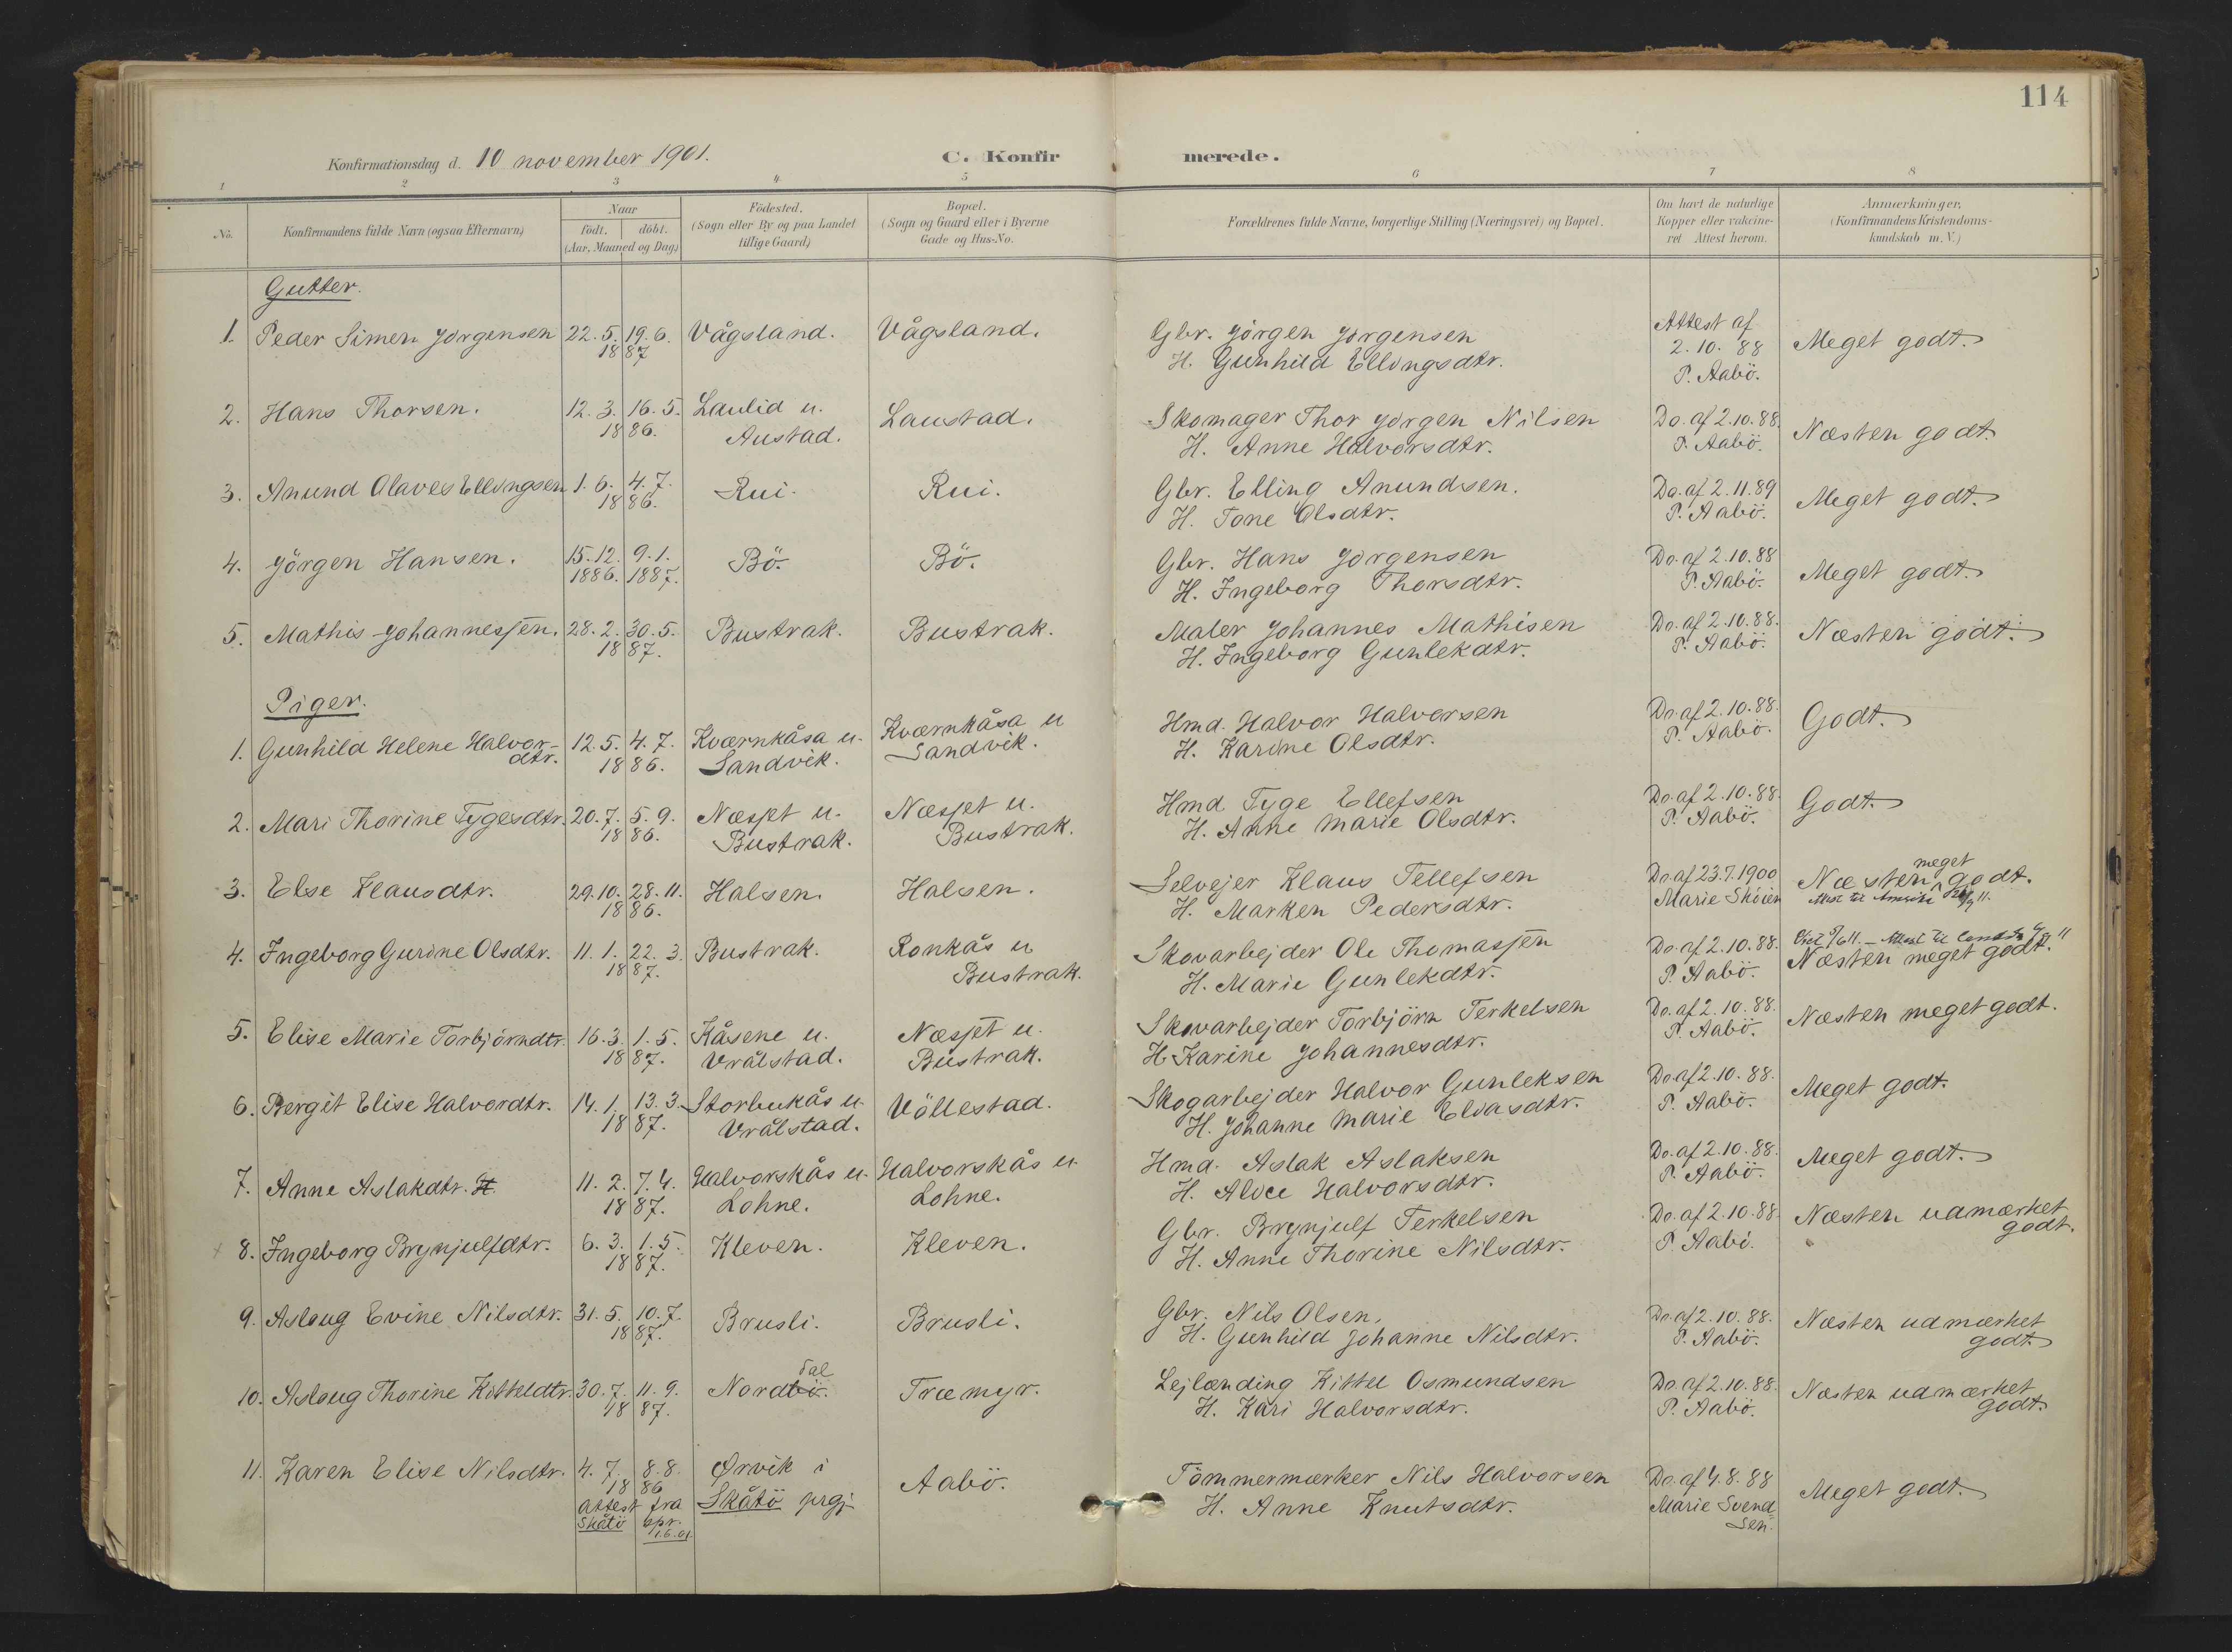 114
Konfirmationsdag d. 10 november 1901.
C. Konfirmerede.
1 2 3 4 5 6 7 8
No.
Konfirmandens fulde Navn (ogsaa Efternavn)
Naar
födt. döbt.
(Aar, Maaned og Dag)
Födested.
(Sogn eller By og paa Landet
tillige Gaard)
Bopæl.
(Sogn og Gaard eller i Byerne
Gade og Hus-No.
Forældrenes fulde Navne, borgerlige Stilling (Næringsvei) og Bopæl.
Om havt de naturlige
Kopper eller vakcine-
ret Attest herom.
Anmærkninger.
(Konfirmandens Kristendoms-
kundskab m. V.)
Gutter.
1. Peder Simen Jörgensen 22.5. 19.6. Vågsland. Vågsland. Gbr. Jörgen Jörgensen Attest af
1887 H. Gunhild Ellingsdtr. 2.10.88 Meget godt.
P. Aabö.
2. Hans Thorsen. 12.3. 16.5. Laulid u. Laustad. Skomager Thor Jörgen Nilsen Do. af 2.10.88. Næsten godt.
1886. Austad. H. Anne Halvorsdtr. P. Aabö.
3. Anund Olaves Ellingsen 1.6. 4.7. Rui. Rui. Gbr. Elling Anundsen. Do. af 2.11.89 Meget godt.
1886. H. Tone Olsdtr. P. Aabö.
4. Jörgen Hansen. 15.12. 9.1. Bö. Bö. Gbr. Hans Jörgensen Do. af 2.10.88 Meget godt.
1886. 1887. H. Ingeborg Thorsdtr. P. Aabö.
5. Mathis Johannessen. 28.2. 30.5. Bustrak. Bustrak. Maler Johannes Mathisen Do. af 2.10.88. Næsten godt.
1887. H. Ingeborg Gunlekdtr. P. Aabö.
Piger.
1. Gunhild Helene Halvor- 12.5. 4.7. Kværnkåsa u. Kværnkåsa u Hmd. Halvor Halvorsen Do. af 2.10.88. Godt.
dtr. 1886. Sandvik. Sandvik. H. Karine Olsdtr. P. Aabö.
2. Mari Thorine Tygesdtr. 20.7. 5.9. Næsset u. Næsset u. Hmd. Tyge Ellefsen Do. af 2.10.88. Godt.
1886. Bustrak. Bustrak. H. Anne Marie Olsdtr. P. Aabö.
3. Else Klausdtr. 29.10. 28.11. Halsen. Halsen. Selvejer Klaus Tellefsen Do. af 23.7.1900 Næsten meget godt.
1886. H. Marken Pedersdtr. Marie Skóien
4. Ingeborg Gurine Olsdtr. 11.1. 22.3. Bustrak. Ronkås u Skovarbejder Ole Thomassen Do. af 2.10.88. Næsten meget godt.
1887. Bustrak. H. Marie Gunlekdtr. P. Aabö.
5. Elise Marie Torbjörndtr. 16.3. 1.5. Kåsene u. Næsset u. Skovarbejder Torbjörn Terkelsen Do. af 2.10.88. Næsten meget godt.
1887. Vrålstad. Bustrak. H. Karine Johannesdtr. P. Aabö.
6. Bergit Elise Halvordtr. 14.1. 13.3. Storbukås u. Völlestad. Skogarbejder Halvor Gunleksen Do. af 2.10.88. Meget godt.
1887. Vrålstad. H. Johanne Marie Eliasdtr. P. Aabö.
7. Anne Aslakdtr. 11.2. 7.4. Halvorskås u. Halvorskås u. Hmd. Aslak Aslaksen Do. af 2.10.88. Meget godt.
1887. Lohne. Lohne. H. Alice Halvorsdtr. P. Aabö.
8. Ingeborg Brynjulfdtr. 6.3. 1.5. Kleven. Kleven. Gbr. Brynjulf Terkelsen Do. af 2.10.88. Næsten udmærket
1887. H. Anne Thorine Nilsdtr. P. Aabö. godt.
9. Aslaug Evine Nilsdtr. 31.5. 10.7. Brusli. Brusli. Gbr. Nils Olsen, Do. af 2.10.88. Næsten udmærket
1887. H. Gunhild Johanne Nilsdtr. P. Aabö. godt.
dal
10. Aslaug Thorine Kitteldtr. 30.7. 11.9. Nordbö. Træmyr. Lejlænding Kittel Osmundsen Do. af 2.10.88. Næsten udmærket
1887. H. Kari Halvorsdtr. P. Aabö. godt.
11. Karen Elise Nilsdtr. 4.7. 8.8. Ørvik i Aabö. Tömmermærker Nils Halvorsen Do. af 4.8.88 Meget godt.
1886 Skåtö prgj. H. Anne Knutsdtr. Marie Svend-
attest fra sen.
Skåtö spr.
1.6.01